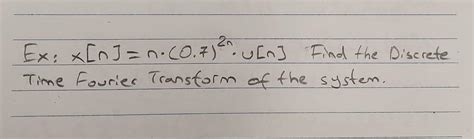 Ex: x[n] = n·(0.7)²ⁿ·u[n] Find the Discrete
Time Fourier Transform of the system.